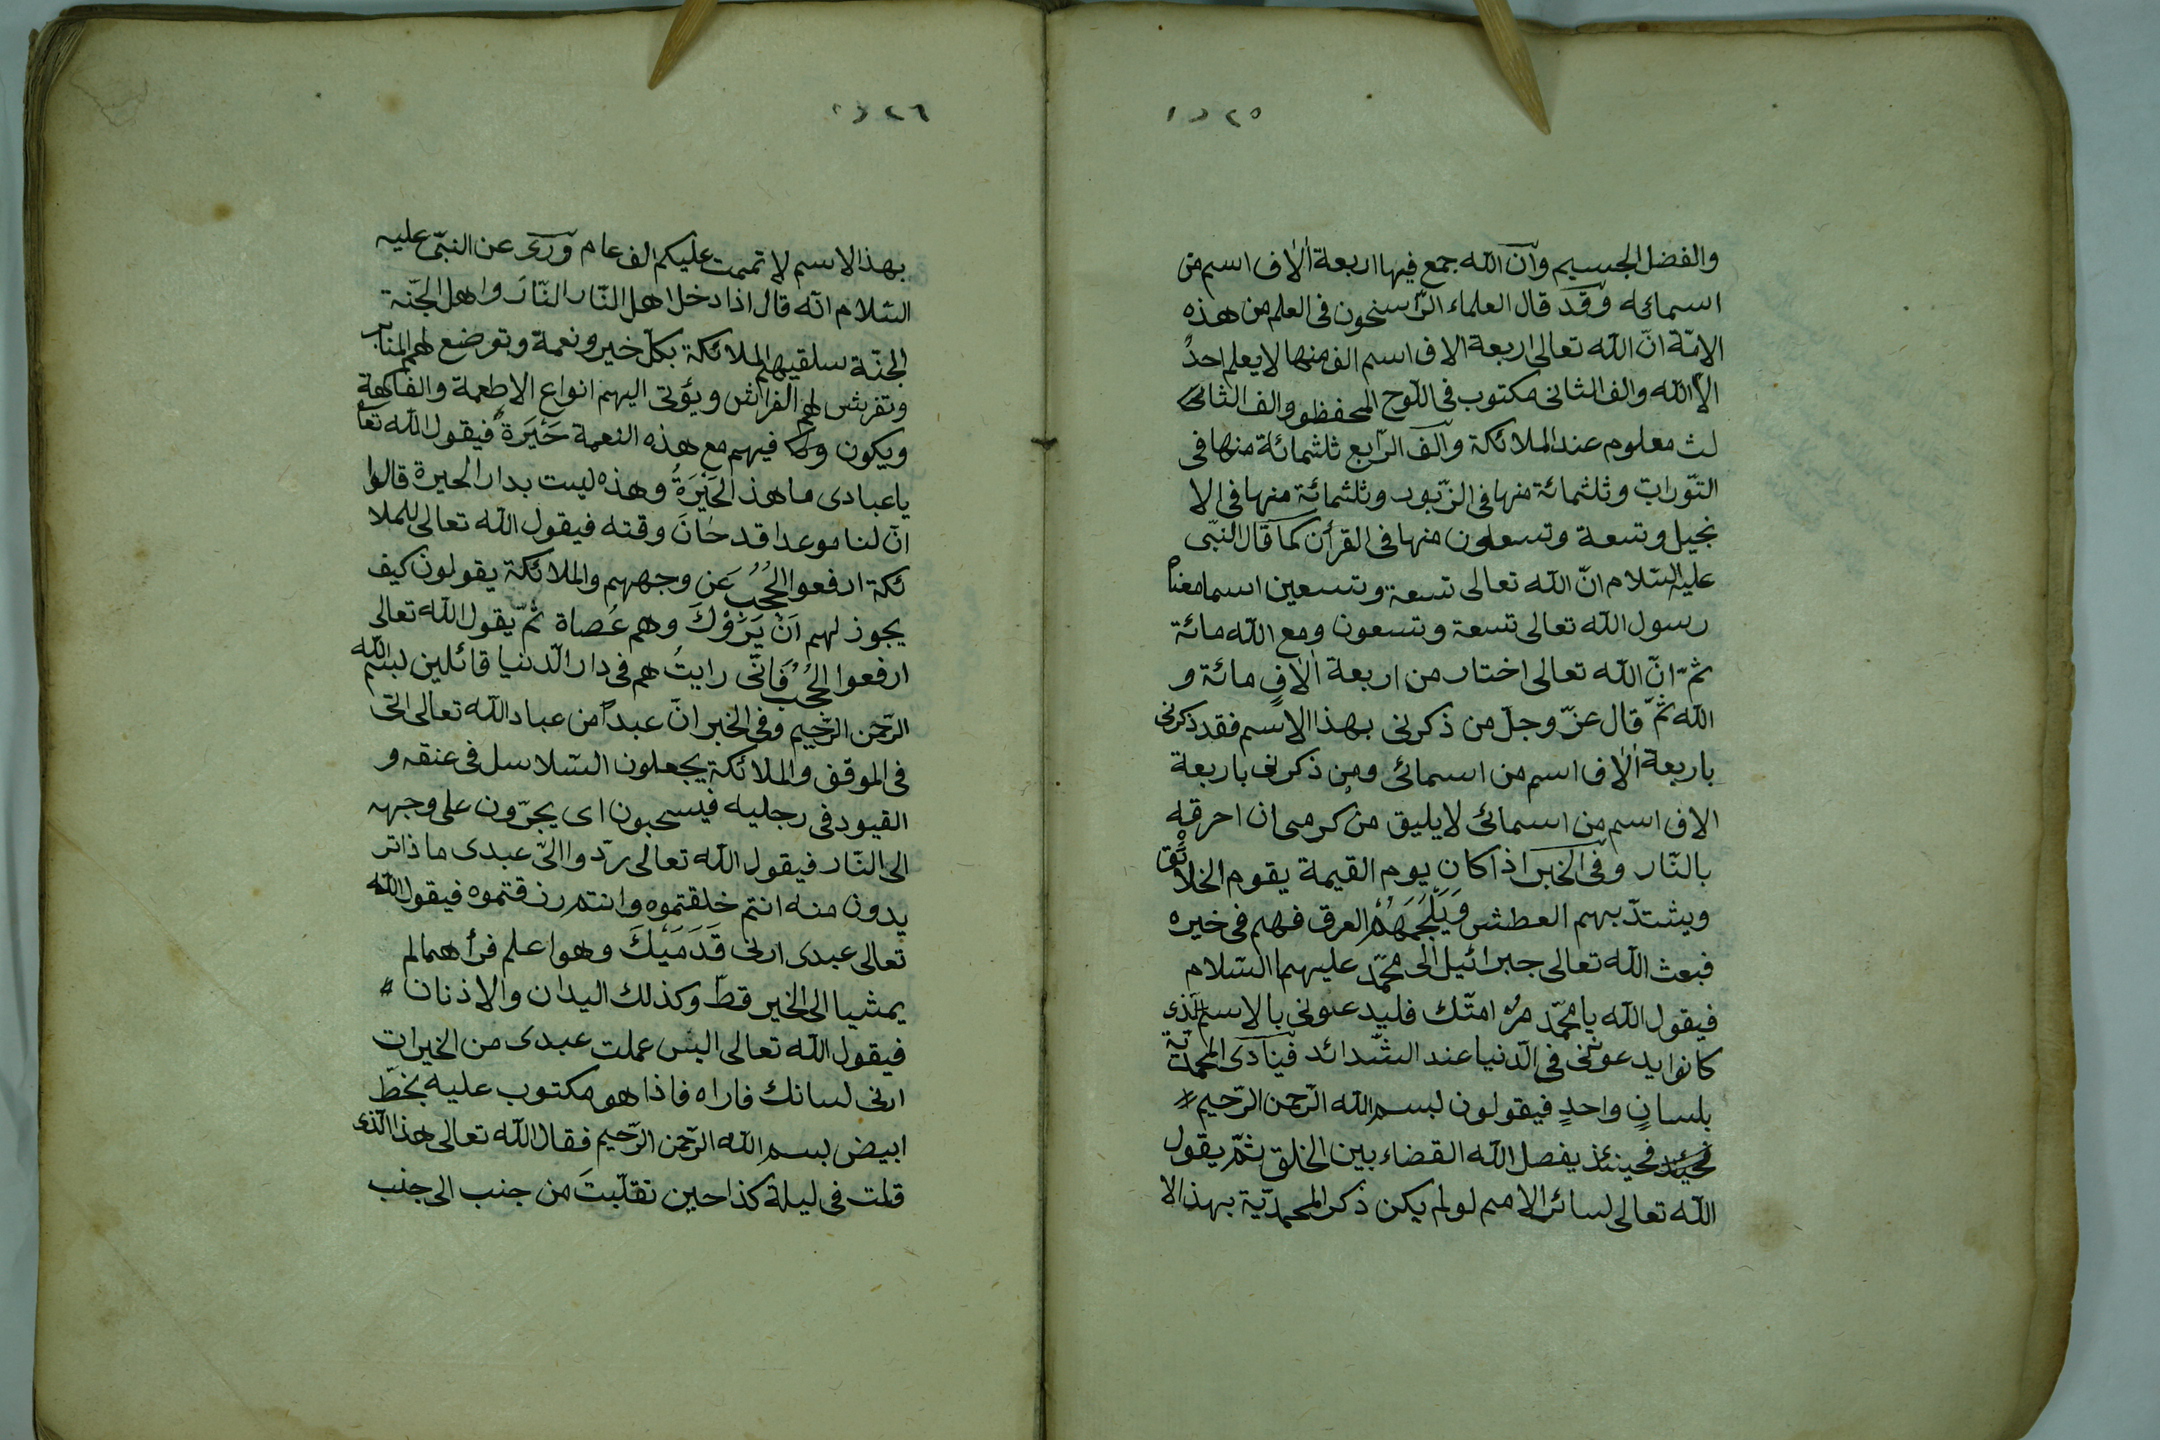 ٥ ٢ د ١
والفضل الجسيم وآن الله جمع فيها اربعة اٰلاف اسم من
اسمائه وقد قال العلماء الرّاسخون فى العلم من هذه
الامّة انّ الله تعالى اربعة الاف اسم الف منها لا يعلم احدٌ
الاّ الله والف الثانى مكتوب فى اللّوح المحفظو والف الثا
لث معلوم عند الملائكة والف الرّابع ثلثمائة منها فى
التّورات وثلثمائة منها فى الزّبور وثلثمائة منها فى الا
نجيل وتسعة وتسعون منها فى القرأن كما قال النّبى
عليه السّلام انّ الله تعالى تسعة وتسعين اسما معنا
رسول الله تعالى تسعة وتسعون ومع الله مائة
ثمّ انّ الله تعالى اختار من اربعة اٰلافٍ مائة و
الله ثمّ قال عزّ وجلّ من ذكرنى بهذا الاسم فقد ذكرنى
باربعة اٰلاف اسم من اسمائى ومن ذكرنى باربعة
الاف اسم من اسمائى لا يليق من كرمى ان احرقه
بالنّار وفى الخبر اذا كان يوم القيمة يقوم الخلائق
ويشتدّ بهم العطش وَيَلْجُمَهُمُ العرق فهم فى خيره
فبعث الله تعالى جبرائيل الى محمّد عليهما السّلام
فيقول الله يا محمّد مرُه امتّك فليدعونى بالاسم الّذى
كانوا يدعوننى فى الدّنيا عند الشّدائد فينادى المحمدّية
بلسانٍ واحدٍ فيقولون بسم الله الرّحمن الرّحيم
فحينئذ يفصل الله القضاء بين الخلق ثمّ يقول
الله تعالى لسائر الامم لو لم يكن ذكر المحمدّية بهذ الا
٦ ٢ د ١
بهذ الاسم لا تممت عليكم الف عام وروى عن النبّى عليه
السّلام انّه قال اذا دخل اهل النّار النّارَ واهل الجّنة
الجنّة سلقيهم الملائكة بكلّ خير ونعمة وتوضع لهم المنابر
وتفرش لهم الفراش ويؤتى اليهم انواع الاطعمة والفاكهة
ويكون فيهم مع هذه النعمة حَيْرَةٌ فيقول الله تعا
يا عبادى ما هذ الحَيْرَةُ وهذه ليست بدار الحيرة قالوا
انّ لنا موعدا قد حٰانَ وقته فيقول الله تعالى للملا
ئكة ارفعوا الحُجُبَ عَن وجههم والملائكة يقولون كيف
يجوز لهم اَنْ يَرَوْكَ وهم عُصاة ثمّ يقول الله تعالى
ارفعوا الحُجُبَ فَانّى رايتُ هم فى دار الدّنيا قائلين بسم الله
الرّحمن الرّحيم وفى الخبر انّ عبداً من عباد الله تعالى اتى
فى الموقف والملائكة يجعلون السّلاسل فى عنقه و
القيود فى رجليه فيسحبون اى يجرّون على وجهه
الى النّار فيقول الله تعالى ردّوا الىّ عبدى ما ذا تر
يدون منه انتم خلقتموه وانتم رزقتموه فيقول الله
تعالى عبدى ارنى قَدَمَيْكَ وهو اعلم فرأهما لم
يمشيا الى الخير قطّ وكذلك اليدان والاذنان
فيقول الله تعالى اليس عملت عبدى من الخيرات
ارنى لسانك فاراه فاذا هو مكتوب عليه بخطّ
ابيض بسم الله الرّحمن الرّحيم فقال الله تعالى هذا الّذى
قلت فى ليلة كذا حين تقلّبتَ من جنب الى جنب